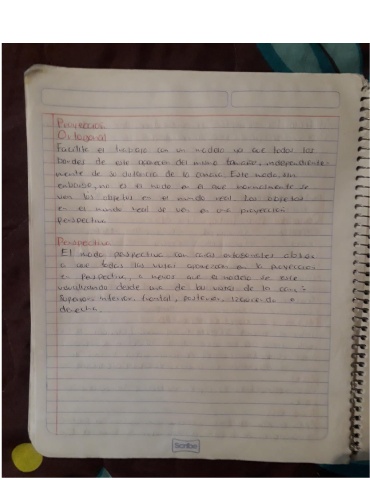 Proyeccion
Ortogonal
Facilita el trabajo con un modelo ya que todos los
bordes de este aparecen del mismo tamaño, independiente-
mente de su distancia de la camara. Este modo, sin
embargo, no es el modo en el que normalmente se
ven los objetos en el mundo real. Los objetos
en el mundo real se ven en una proyeccion
perspectiva.
Perspectiva
El modo perspectiva con caras ortogonales obliga
a que todas las vistas aparezcan en la proyeccion
en perspectiva, a menos que el modelo se este
visualizando desde una de las vistas de la cara:
Superior, inferior, frontal, posterior, izquierda o
derecha.
Scribe